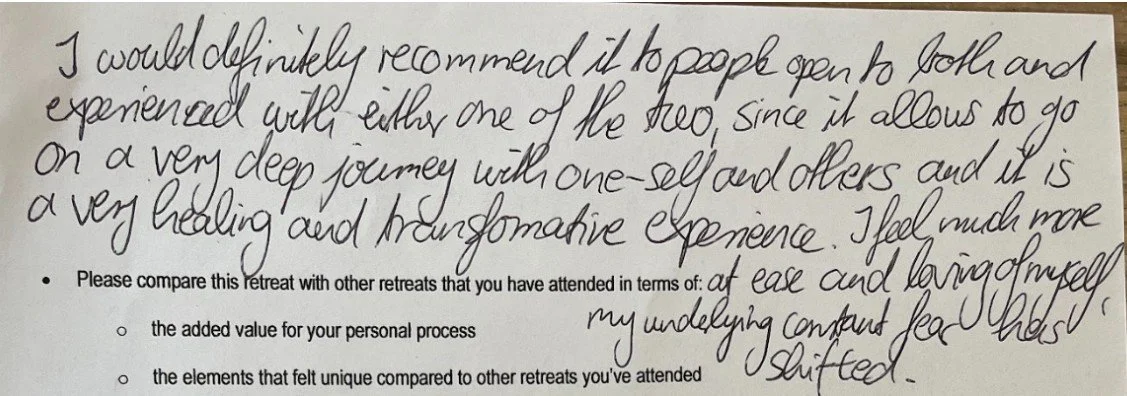 I would definitely recommend it to people open to both and
experienced with either one of the two, since it allows to go
on a very deep journey with one-self and others and it is
a very healing and transfomative experience. I feel much more
at ease and loving of myself,
my undelying constant fear has
shifted.
• Please compare this retreat with other retreats that you have attended in terms of:
o the added value for your personal process
o the elements that felt unique compared to other retreats you've attended